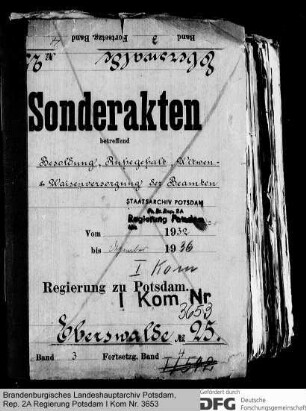 Band 3 Fortsetzg. Band
Eberswalde №
Sonderakten
betreffend
Besoldung, Ruhegehalt, Witwen-
& Waisenversorgung der Beamten
STAATSARCHIV POTSDAM
Pr. Br. Rep. 2A
Regierung Potsdam
Vom 1932
bis 1936
I Kom
Regierung zu Potsdam.
I Kom Nr
3653
Eberswalde № 25.
Band 3 Fortsetzg. Band
Brandenburgisches Landeshauptarchiv Potsdam,
Rep. 2A Regierung Potsdam I Kom Nr. 3653
Gefördert durch
DFG Deutsche
Forschungsgemeinschaft